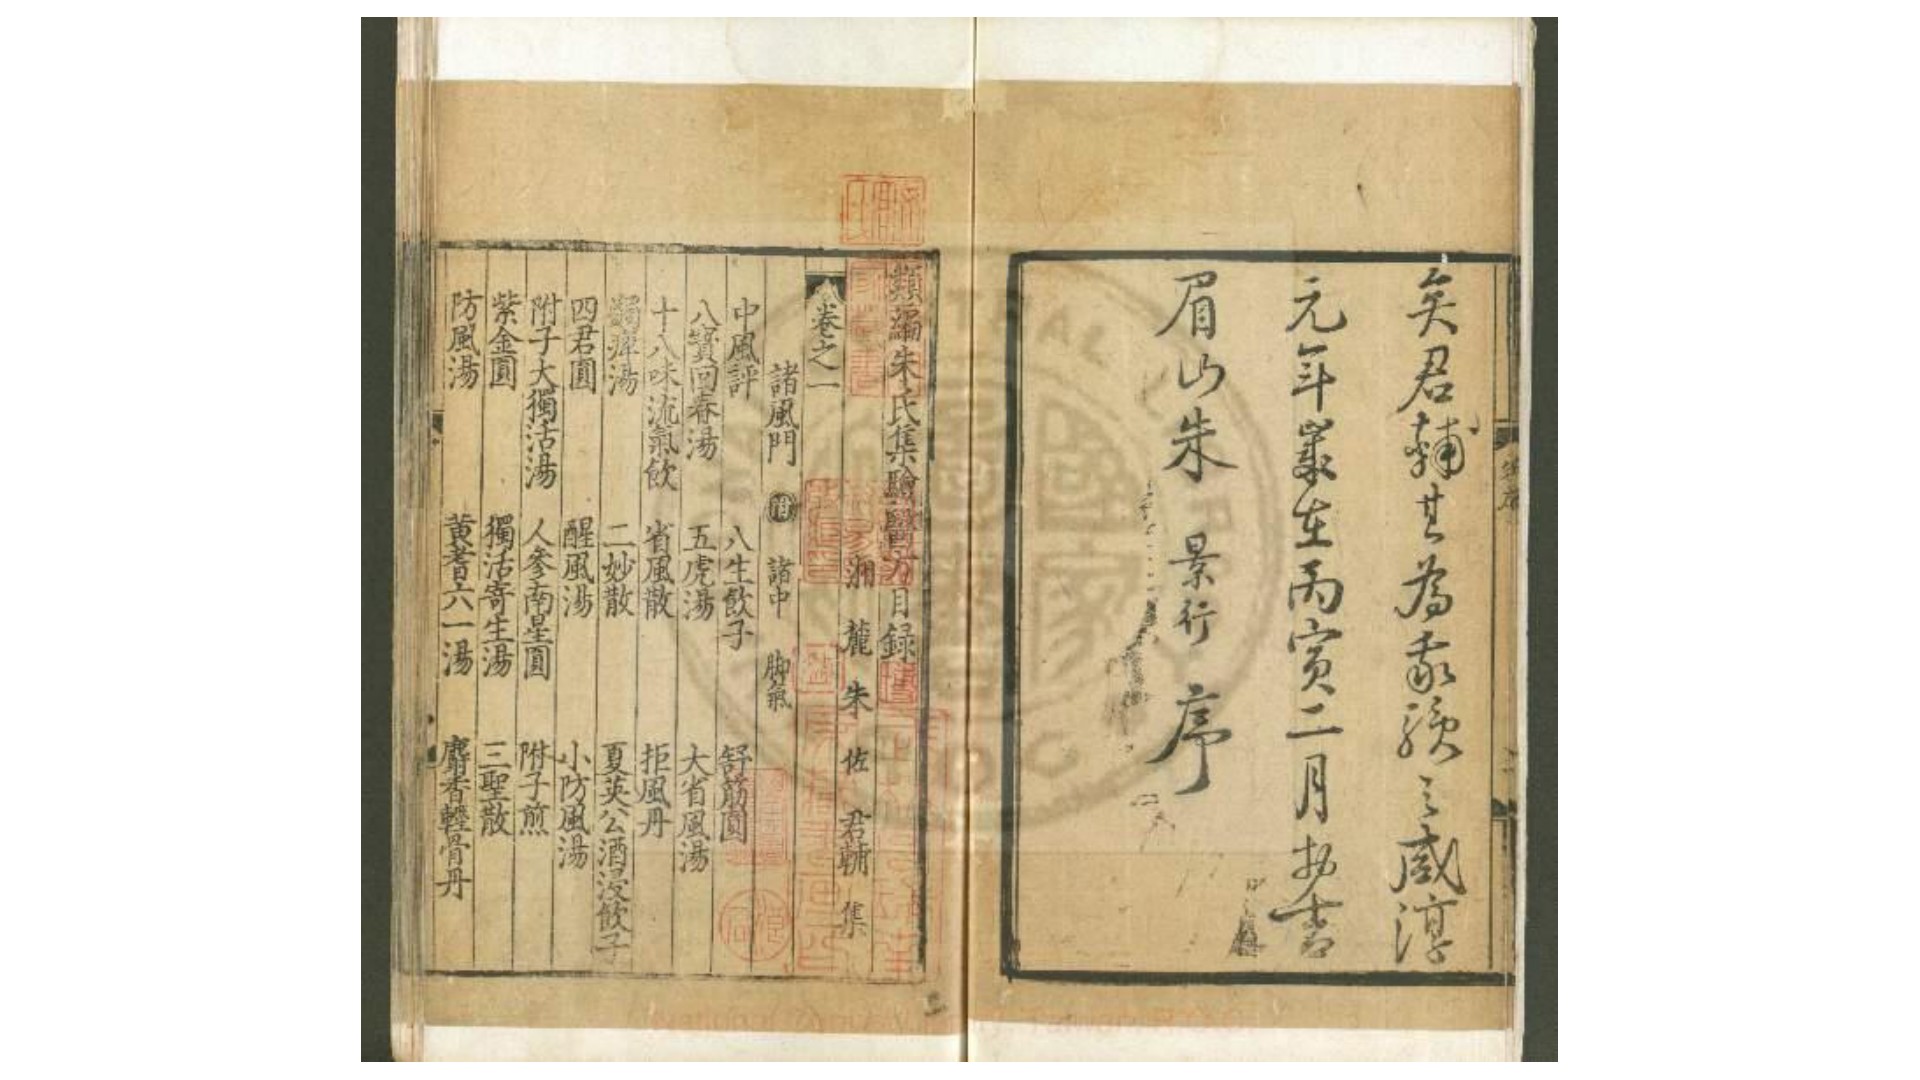 矣君輔其為我頌之咸淳
元年歲在丙寅二月初吉
眉山朱景行序
類編朱氏集驗醫方目録
湘麓朱佐君輔集
卷之一
諸風門 附 諸中 脚氣
中風評 八生飲子 舒筋圓
八寶回春湯 五虎湯 大省風湯
十八味流氣飲 省風散 拒風丹
蠲痺湯 二妙散 夏英公酒浸飲子
四君圓 醒風湯 小防風湯
附子大獨活湯 人參南星圓 附子煎
紫金圓 獨活寄生湯 三聖散
防風湯 黄耆六一湯 麝香輕骨丹